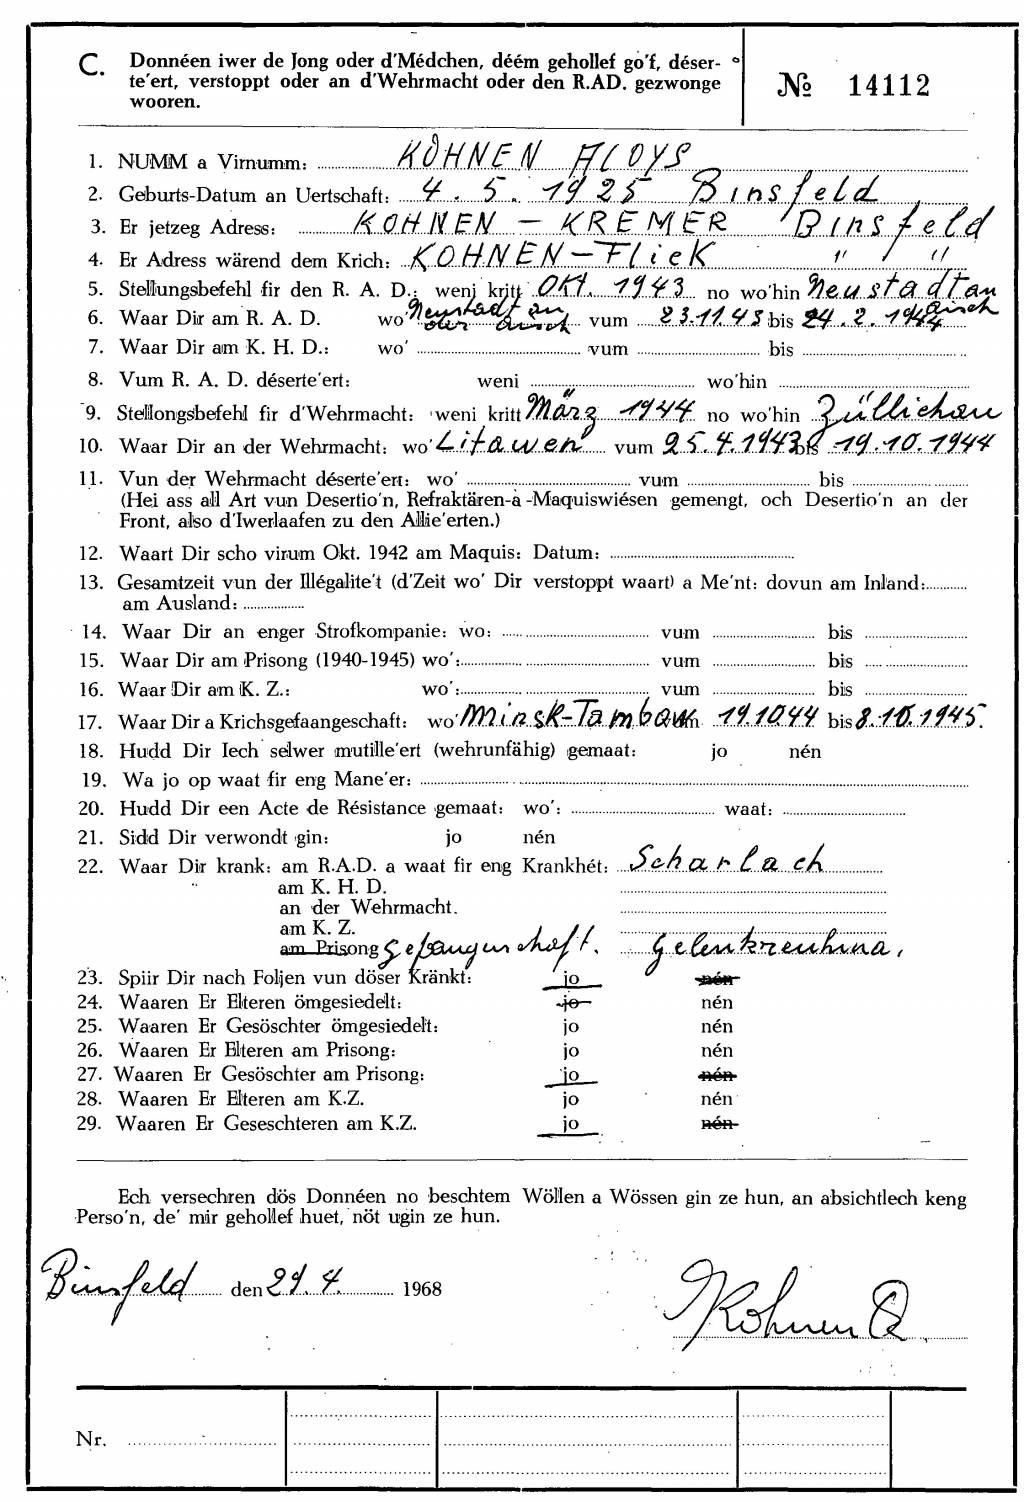 C. Donnéen iwer de Jong oder d'Médchen, déém gehollef go'f, déser-
te'ert, verstoppt oder an d'Wehrmacht oder den R.AD. gezwonge
wooren.
№ 14112
1. NUMM a Virnumm: KOHNEN ALOYS
2. Geburts-Datum an Uertschaft: 4. 5. 1925 Binsfeld
3. Er jetzeg Adress: KOHNEN - KREMER Binsfeld
4. Er Adress wärend dem Krich: KOHNEN - Fliek " "
5. Stellungsbefehl fir den R. A. D.: weni kritt Okt. 1943 no wo'hin Neustadt an
6. Waar Dir am R. A. D. wo' Neustadt an der Aisch vum 23.11.43 bis 24. 2. 1944 Aisch
7. Waar Dir am K. H. D.: wo' vum bis
8. Vum R. A. D. déserte'ert: weni wo'hin
9. Stelllongsbefehl fir d'Wehrmacht: weni kritt März 1944 no wo'hin Züllichau
10. Waar Dir an der Wehrmacht: wo' Litawen vum 25.4.1943 bis 19.10.1944
11. Vun der Wehrmacht déserte'ert: wo' vum bis
(Hei ass all Art vun Desertio'n, Refraktären-a-Maquiswiésen gemengt, och Desertio'n an der
Front, also d'Iwerlaafen zu den Allie'erten.)
12. Waart Dir scho virum Okt. 1942 am Maquis: Datum:
13. Gesamtzeit vun der Illégalite't (d'Zeit wo' Dir verstoppt waart) a Me'nt: dovun am Inland:
am Ausland:
14. Waar Dir an enger Strofkompanie: wo: vum bis
15. Waar Dir am Prisong (1940-1945) wo': vum bis
16. Waar Dir am K. Z.: wo': vum bis
17. Waar Dir a Krichsgefaangeschaft: wo' Minsk-Tambow vum 19.10 44 bis 8.10.1945.
18. Hudd Dir Iech selwer mutille'ert (wehrunfähig) gemaat: jo nén
19. Wa jo op waat fir eng Mane'er:
20. Hudd Dir een Acte de Résistance gemaat: wo': waat:
21. Sidd Dir verwondt gin: jo nén
22. Waar Dir krank: am R.A.D. a waat fir eng Krankhét: Scharlach
" am K. H. D.
an der Wehrmacht.
am K. Z.
am Prisong Gefangenschaft.
23. Spiir Dir nach Foljen vun döser Kränkt: jo nén
24. Waaren Er Elteren ömgesiedelt: jo nén
25. Waaren Er Gesöschter ömgesiedelt: jo nén
26. Waaren Er Elteren am Prisong: jo nén
27. Waaren Er Gesöschter am Prisong: jo nén
28. Waaren Er Elteren am K.Z. jo nén
29. Waaren Er Geseschteren am K.Z. jo nén
Ech versechren dös Donnéen no beschtem Wöllen a Wössen gin ze hun, an absichtlech keng
Perso'n, de' mir gehollef huet, nöt ugin ze hun.
Binsfeld den 29. 4. 1968
Kohnen A.
Nr.